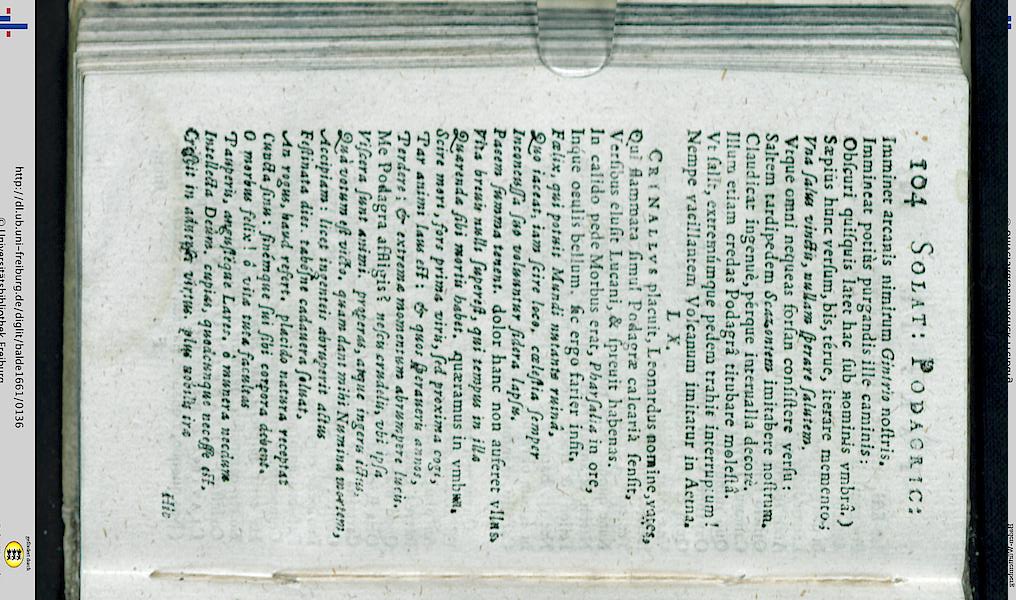 104 SOLAT: PODAGRIC:
Imminet arcanis nimirum Ginirio nostris.
Immineat potiùs purgandis ille caminis:
Obscuri quisquis latet hac sub nominis vmbrâ.)
Sæpiùs hunc versum, bis, térue, iterare memento;
Vna salus victis, nullam sperare salutem.
Vtque omni nequeas forsan consistere versu:
Saltem tardipedem Scazontem imitabere nostrum.
Claudicat ingenuè, perque interualla decorè.
Illum etiam credas Podagrâ titubare molestâ.
Vt salit, extremúmque pedem trahit interruptum!
Nempe vacillantem Volcanum imitatur in Aetna.
LX.
CRINALLVS placuit, Leonardus nomine, vates,
Qui flammata simul Podagræ calcaria sensit,
Versibus elusit Lucani, & spreuit habenas.
In calido pede Morbus erat, Pharsalia in ore,
Inque oculis bellum. sic ergo fauier infit,
Fœlix, qui potuit Mundi nutante ruinâ,
Quo iaceat, iam scire loco. cælestia semper
Inconcussa suo voluuntur sidera lapsu.
Pacem summa tenent. dolor hanc non auferet vllus.
Vita breuis nulli superest, qui tempus in illa
Quærendæ sibi mortis habet. quæramus in vmbra,
Scire mori, sors prima viris, sed proxima cogi,
Par animi laus est: & quos speraueris annos,
Perdere: & extremæ momentum abrumpere lucis.
Me Podagra affligit? nescio crudelis, vbi ipsa
Viscera sunt animi. properas, atque ingeris ictus,
Quâ votum est victo, quam dant mihi Numina mortem,
Accipiam: licet ingentes abruperit actus
Festinata dies. tabésne cadauera soluat,
An rogus, haud refert. placido natura receptat
Cuncta sinu, finemque sui sibi corpora debent.
O morbus felix! ô vitæ tuta facultas
Pauperis, angustíque Lares: ô munera nondum
Intellecta Deûm. cupias, quodcunque necesse est,
Crescit in aduersis virtus. plus nobilis iræ
Hic
http://dl.ub.uni-freiburg.de/diglit/balde1661/0136
© Universitätsbibliothek Freiburg
gefördert durch